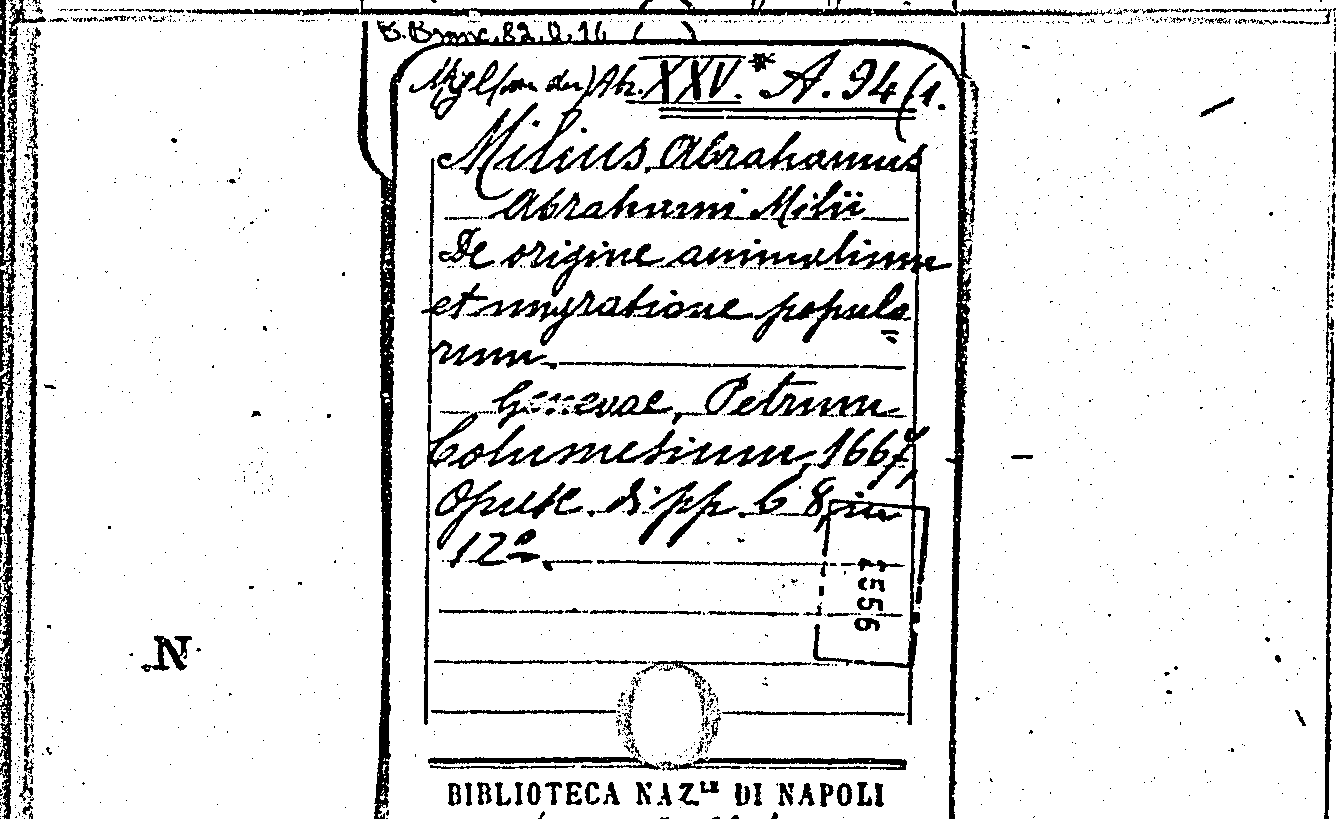 B. Branc. 82. D. 16 ( )
Myl (van der) Ab. XXV.* A. 94 (1.
Milius Abrahamus
Abrahami Milii
De origine animalium
et migratione populo
rum.
Genevae, Petrum
Columesium, 1667,
Opusc. di pp. 68, in
12º.
2556
N
BIBLIOTECA NAZ.LE DI NAPOLI